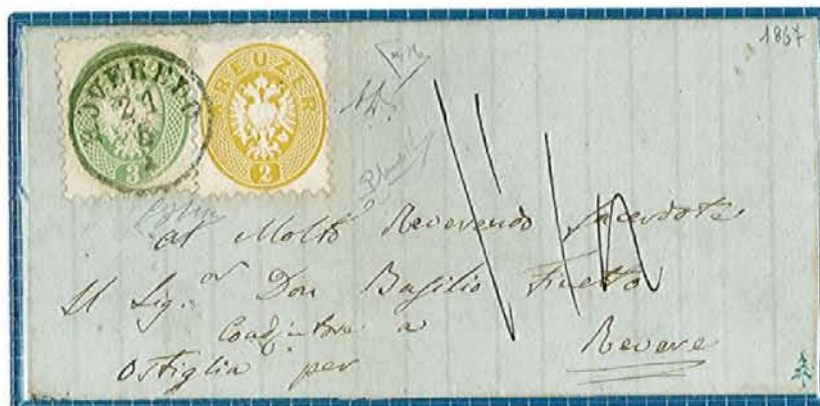 1867
ROVEREDO
21
6
KREUZER
3
2
al Molto Reverendo Sacerdote
Il Sig.or Don Basilio Finetto
Coadjutore a
Ostiglia per Revere